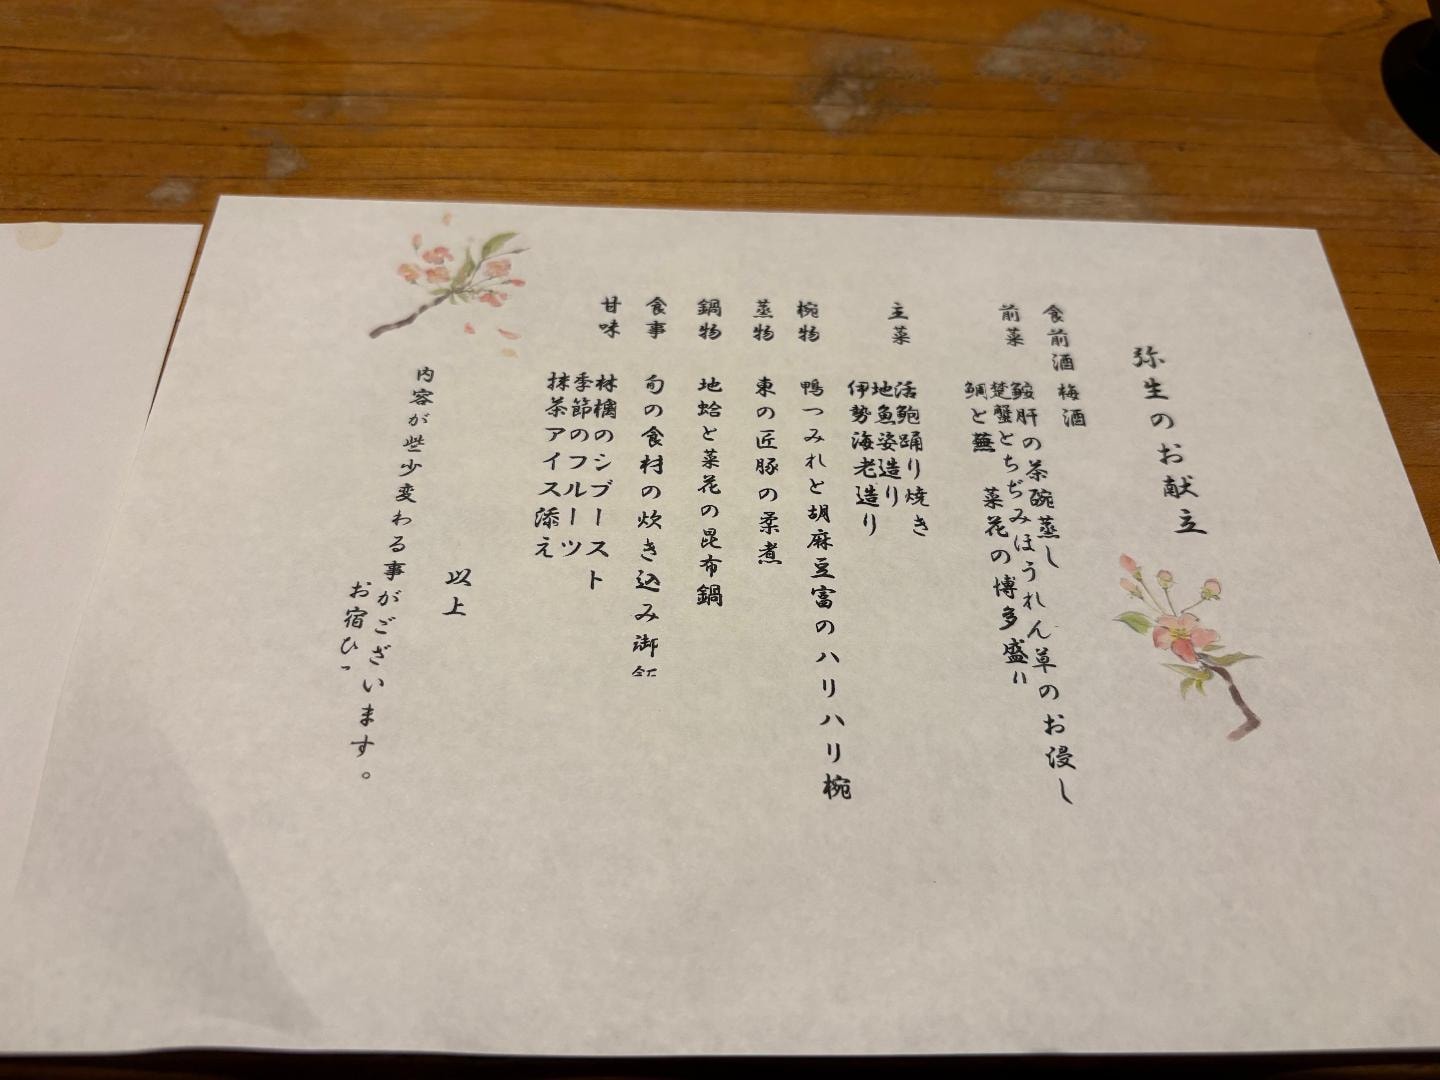 弥生のお献立
食前酒 梅酒
前菜 鮟肝の茶碗蒸し
楚蟹とちぢみほうれん草のお浸し
鯛と蕪 菜花の博多盛り
主菜 活鮑踊り焼き
地魚姿造り
伊勢海老造り
椀物 鴨つみれと胡麻豆富のハリハリ椀
蒸物 東の匠豚の柔煮
鍋物 地蛤と菜花の昆布鍋
食事 旬の食材の炊き込み御飯
甘味 林檎のシブースト
季節のフルーツ
抹茶アイス添え
以上
内容が些少変わる事がございます。
お宿ひ